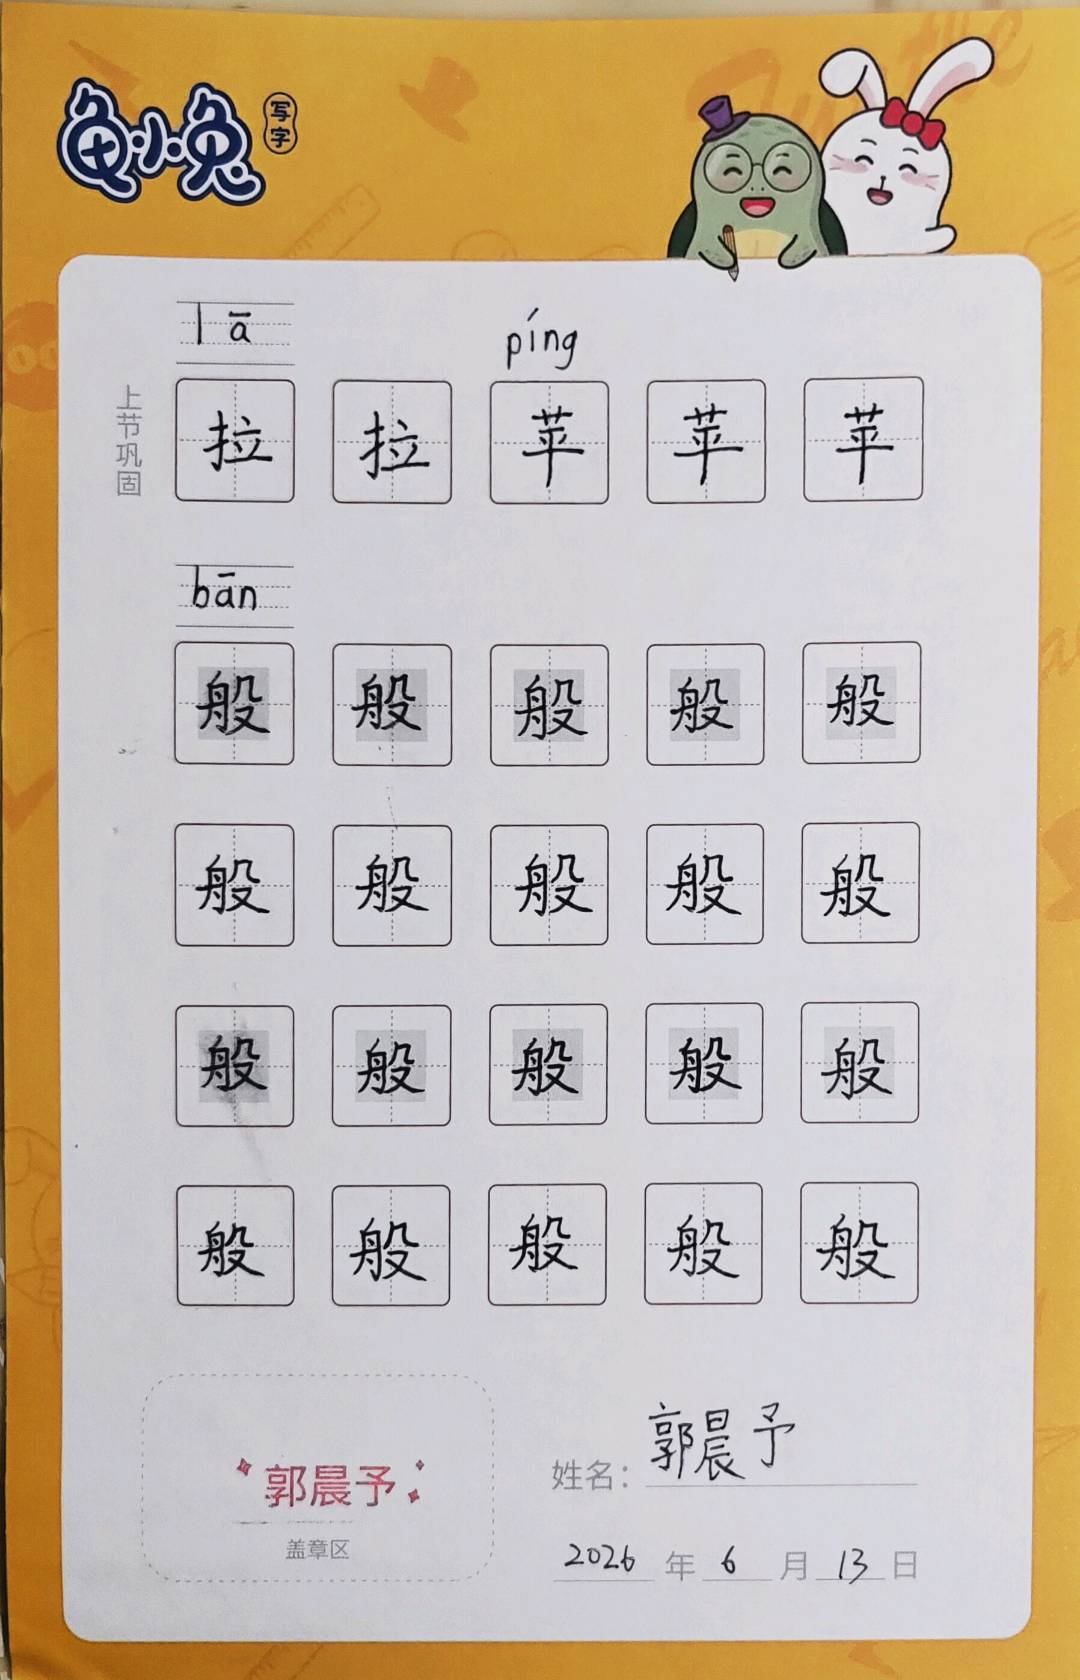 龟小兔 写字
lā píng
上节巩固
拉 拉 苹 苹 苹
bān
般 般 般 般 般
般 般 般 般 般
般 般 般 般 般
般 般 般 般 般
郭晨予
盖章区
姓名：郭晨予
2026 年 6 月 13 日